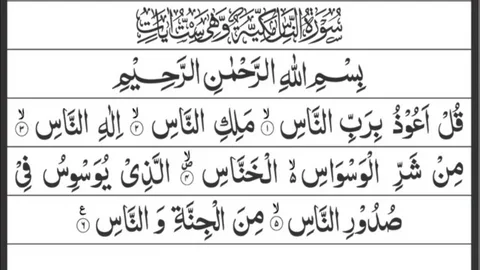 سُوْرَةُ النَّاسِ مَكِّيَّةٌ وَّهِىَ سِتُّ اٰيَاتٍ
بِسْمِ اللّٰهِ الرَّحْمٰنِ الرَّحِيْمِ
قُلْ اَعُوْذُ بِرَبِّ النَّاسِ ۙ﴿۱﴾ مَلِكِ النَّاسِ ۙ﴿۲﴾ اِلٰهِ النَّاسِ ۙ﴿۳﴾
مِنْ شَرِّ الْوَسْوَاسِ ۙ۬ الْخَنَّاسِ ۪ۙ﴿۴﴾ الَّذِیْ یُوَسْوِسُ فِیْ
صُدُوْرِ النَّاسِ ۙ﴿۵﴾ مِنَ الْجِنَّةِ وَ النَّاسِ ﴿۶﴾ ع